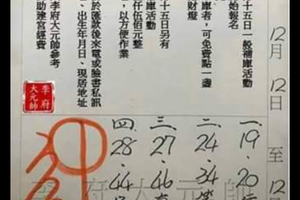 12月12日至12
十五日一般補庫活動
始報名
庫者,可免費點一盞
財燈
十五日另有
庫活動
仟伍佰元整
,以方便作業
於匯款後來電或臉書私訊
、出生年月日、現居地址
李府大元帥參考
李府大元帥
一.19.20
二.24.34
三.27.46
四.28.44
李府大元帥